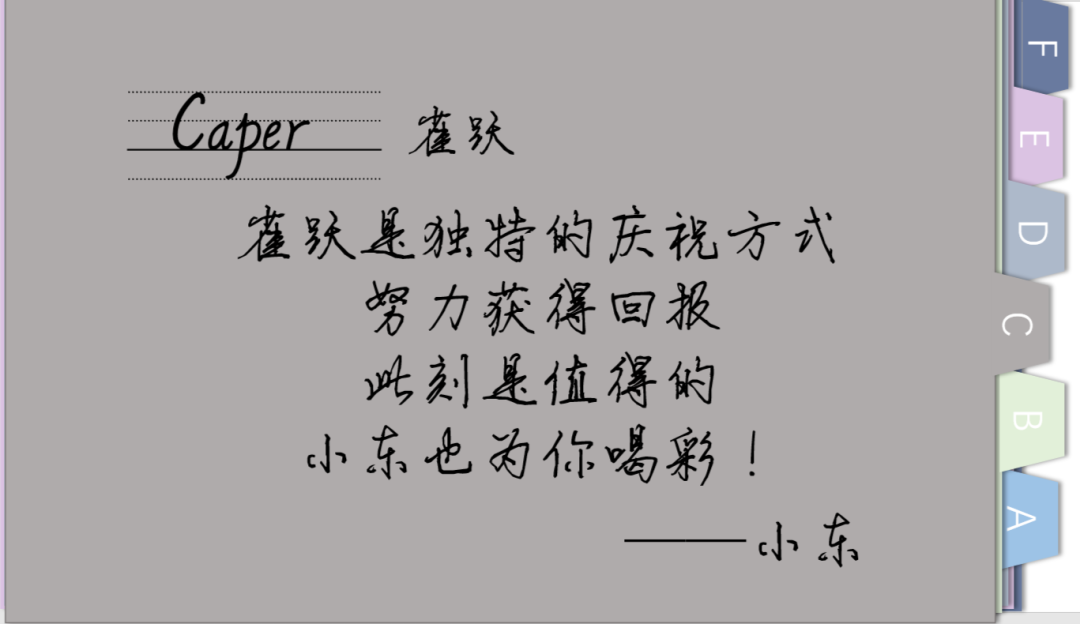 Caper 雀跃
雀跃是独特的庆祝方式
努力获得回报
此刻是值得的
小东也为你喝彩！
——小东
F
E
D
C
B
A